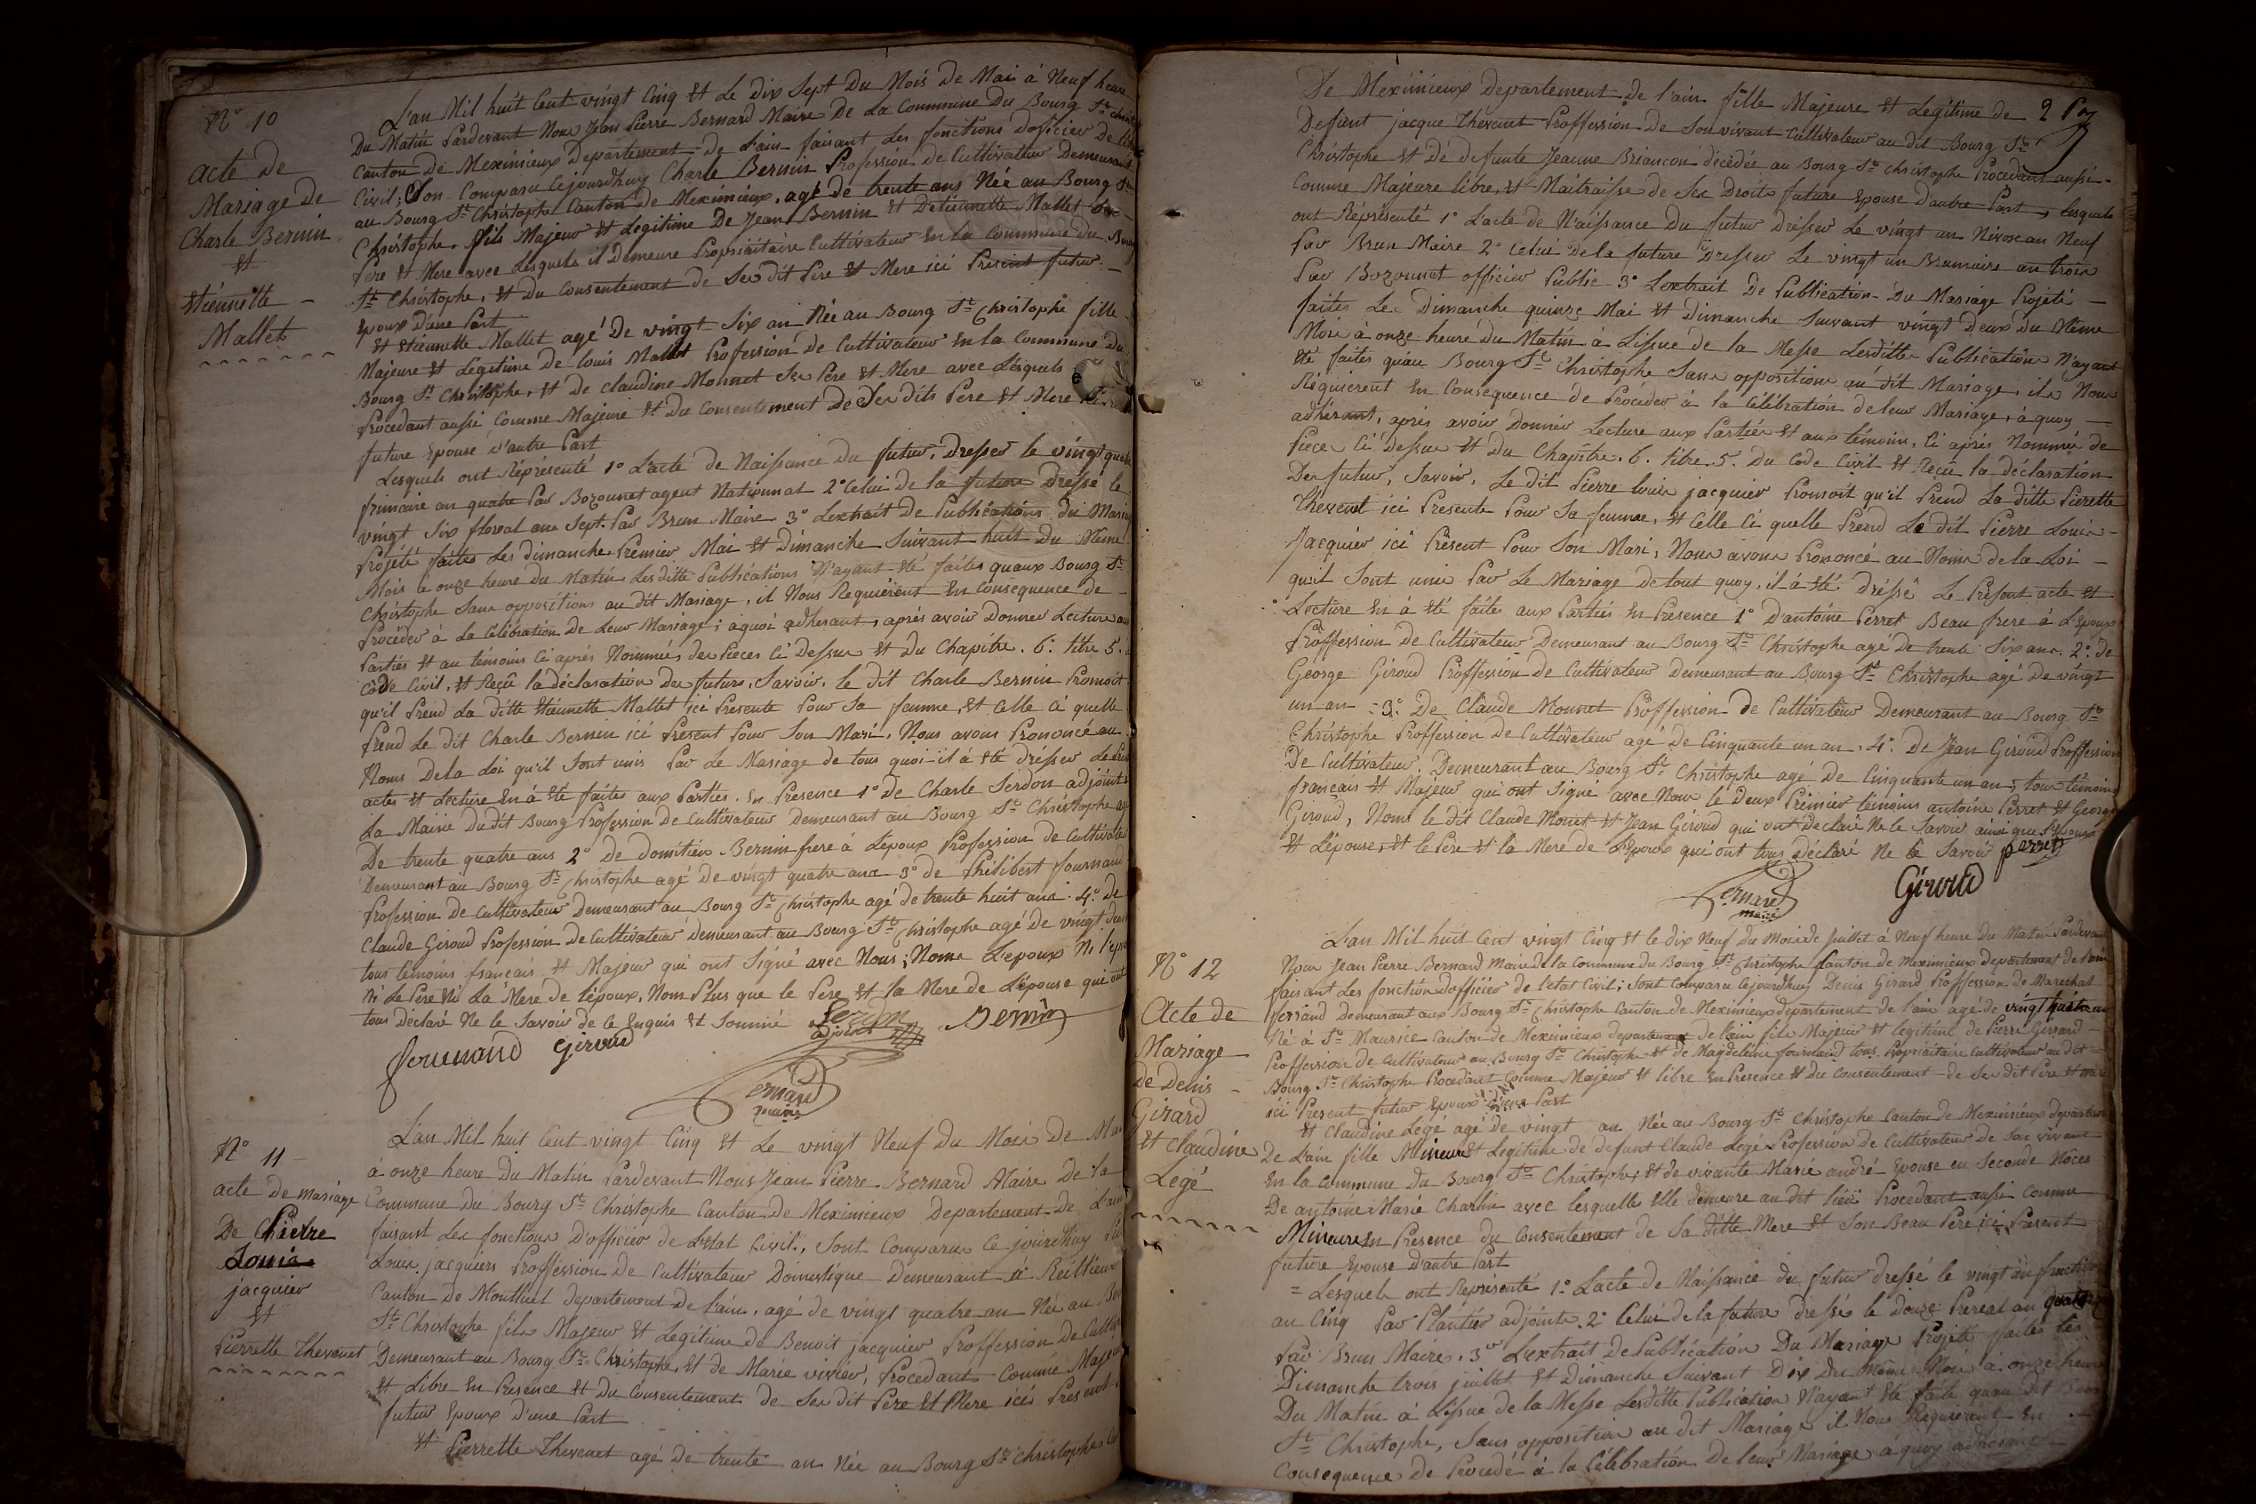 N° 10
acte de
Mariage de
Charle Bernin
et
Etiennette
Mallet
L'an Mil huit Cent vingt Cinq et Le dix Sept Du Mois de Mai à Neuf heure
Du Matin Pardevant Nous Jean Pierre Bernard Maire De La Commune Du Bourg St
Canton De Meximieux Departement De L'ain faisant Les fonctions d'oficier De
Civil; Son Comparu Cejourdhuy Charle Bernin Profession de Cultivateur Demeurant
au Bourg St Christophe Canton de Meximieux, agé de trente ans Née au Bourg St
Christophe, fils Majeur et Legitime De Jean Bernin et Detiennette Mallet
Pere et Mere avec Lesquels il Demeure Propriaitaire Cultivateur En La Commune du
St Christophe, et Du Consentement de Ses dit Pere et Mere ici Present futur
Epoux d'une Part
et Etiennette Mallet agé De vingt Six an Née au Bourg St Christophe fille
Majeure et Légitime De Louis Mallet Profession De Cultivateur En La Commune Du
Bourg St Christophe, et De Claudine Monnet Ses Pere et Mere avec Lesquels
Procedant aussi Comme Majeure et Du Consentement De Ses Dits Pere et Mere
future Epouse d'autre Part
Lesquels ont Représenté 1° L'acte De Naissance Du futur, Dresser le vingt
frimaire an quatre Par Bozounet agent Nationnat 2° Celui de la future Dressé le
vingt Six floreal an Sept. Par Brun Maire 3° L'extrait De Publications du
Projété faites Les dimanche Premier Mai et Dimanche Suivant huit Du Même
Mois a onze heure du Matin Lesditte Publications N'ayant été faites quaux Bourg St
Christophe Sans oppositions au dit Mariage, il Nous Requièrent En Consequence de
Procéder à La Célébration De Leur Mariage; aquoi adherant, après avoir Donner Lecture
Parties et au témoins Ci après Nommés, des Pieces Ci Dessus et du Chapitre. 6. titre 5.
Code Civil, et Reçû la déclaration Des futurs, Savoir, le dit Charle Bernin
qu'il Prend La ditte Etiennette Mallet ici Presente Pour Sa femme, et Celle Ci quelle
Prend Le dit Charle Bernin ici Present Pour Son Mari, Nous avons Prononcé au
Noms De la Loi qu'il Sont unis Par Le Mariage de tous quoi il à été dresser
actes et Lecture En à été faites aux Parties. En Presence 1° De Charle Serdon adjoint
La Mairie Dudit Bourg Profession De Cultivateur Demeurant au Bourg St Christophe
De trente quatre ans 2° De domitien Bernin frere à L'epoux Profession De
Demeurant au Bourg St Christophe agé De vingt quatre ans 3° de Philibert Journaud
Profession De Cultivateur Demeurant au Bourg St Christophe agé de trente huit ans 4° de
Claude Giroud Profession De Cultivateur Demeurant au Bourg St Christophe agé De vingt
tous témoins francais et Majeur qui ont Signé avec Nous, L'epoux Ni
Ni Le Pere Ni La Mere de L'époux, Nom Plus que le Pere et la Mere de L'épouse qui
tous Déclaré Ne le Savoir de ce Enquis et Sommé
adjoint
Bernin
Journaud Giroud
Bernard
maire
N° 11
acte de mariage
De Pierre
Louis
jacquier
et
Pierrette Thevenet
L'an Mil huit Cent vingt Cinq et Le vingt Neuf du Mois De
à onze heure Du Matin Pardevant Nous Jean Pierre Bernard Maire De la
Commune du Bourg St Christophe Canton De Meximieux Departement De
faisant Les fonctions D'officier de L'etat Civil, Sont Comparus Ce jourdhuy
Louis jacquiers Proffession De Cultivateur Domestique Demeurant a
Canton De Montluel departement De L'ain, agé de vingt quatre an Née au
St Christophe fils Majeur et Legitime De Benoit jacquier Proffession De
Demeurant au Bourg St Christophe, et de Marie vivier, Procedant Comme
et Libre En Presence et Du Consentement de Ses dit Père et Mere ici
futur Epoux d'une Part
et Pierrette Thevenet agé de trente an Née au Bourg St Christophe
De Meximieux Departement De L'ain fille Majeure et Legitime de
Defunt jacque Thevenet Proffession De Son vivant Cultivateur au dit Bourg St
Christophe et Dé defunte Jeanne Briancon décédée au Bourg St Christophe Procedant aussi
Comme Majeure libre, et Maitraisse de Ses Droits future Epouse d'autre Part, Lesquels
ont Réprésenté 1° L'acte de Naissance Du futur Dresser Le vingt un Nivose an Neuf
Par Brun Maire 2° Celui De la future Dresser Le vingt un Brumaire an trois
Par Bozounet officier Public 3° L'extrait De Publication Du Mariage Projeté
faites Les Dimanche quinze Mai et Dimanche Suivant vingt Deux du Même
Mois à onze heure du Matin à L'issue de la Messe Lesditte Publication N'ayant
été faites qu'au Bourg St Christophe Sans opposition au dit Mariage, ils Nous
Réquierent En Consequence De Procéder à la Célébration de leur Mariage, à quoy
adhérant, après avoir Donner Lecture aux Parties et aux témoins, Ci après Nommé de
Pieces Ci Dessus et Du Chapitre. 6. titre. 5. Du Code Civil et Reçu la déclaration
Des futur, Savoir, Le dit Pierre Louis jacquier qu'il Prend La ditte Pierrette
Thevenet ici Presente Pour Sa femme, et Celle Ci quelle Prend Le dit Pierre Louis
Jacquier ici Present Pour Son Mari, Nous avons Prononcé au Nom de la Loi
qu'il Sont unis Par Le Mariage de tout quoy, il à été dréssé Le Présent acte et
Lecture En à été faites aux Parties En Presence 1° D'antoine Perret Beau frere à L'epoux
Proffession De Cultivateur Demeurant au Bourg St Christophe agé De trente Six ans. 2° de
George Giroud Proffession De Cultivateur Demeurant au Bourg St Christophe agé De vingt
un an 3° De Claude Monnet Proffession De Cultivateur Demeurant au Bourg St
Christophe Proffession de Cultivateur agé De Cinquante un an. 4° De Jean Giroud Proffession
De Cultivateur Demeurant au Bourg St Christophe agé De Cinquante un an; tous témoins
francais et Majeur qui ont Signé avec Nous le Deux Prémier témoins antoine Perret et George
Giroud, Noms le dit Claude Monet et Jean Giroud qui ont Déclaré Ne le Savoir ainsi que L'Epoux
et L'épouse, et le Pere et la Mere de L'Epoux qui ont tous Déclaré Ne le Savoir Perret
Bernard
maire
Giroud
N° 12
Acte de
Mariage
De Denis
Girard
et Claudine
Legé
L'an Mil huit Cent vingt Cinq et le dix Neuf du Mois de Juillet à Neuf heure Du Matin Pardevant
Nous Jean Pierre Bernard Maire de la Commune du Bourg St Christophe Canton de Meximieux departement de L'ain
faisant Les fonction d'officier de l'etat Civil; Sont Comparu Cejourdhuy Denis Girard Proffession de Marechal
ferrand Demeurant aux Bourg St Christophe Canton de Meximieux departement de L'ain agé de vingt
Né à St Maurice Canton de Meximieux departement de L'ain fils Majeur et Legitime de Pierre Girard
Proffession de Cultivateur au Bourg St Christophe et de Magdeleine fournaud tous Propriaitaire Cultivateur au dit
Bourg St Christophe Procedant Comme Majeur et libre En Presence et du Consentement de Ses dit Pere et
ici Present futur Epoux d'une Part
et Claudine Legé agé de vingt an Née au Bourg St Christophe Canton de Meximieux
De L'ain fille Mineure et Legitime de defunt Claude Legé Profession de Cultivateur de Son vivant
En la Commune du Bourg St Christophe, et de vivante Marie andré Epouse en Seconde Nôces
De antoine Marie Charlin avec lesquelle Elle demeure au dit lieu Procedant aussi Comme
Mineure En Présence du Consentement de Sa ditte Mere et Son Beau Pere ici Present
future Epouse d'autre Part
Lesquels ont Représenté 1° L'acte de Naissance du futur dressé le vingt un
an Cinq Par Plantier adjoint 2° Celui de la future dressés le douze Prereal an
Par Brun Maire, 3° L'extrait De Publication Du Mariage Projeté faites Les
Dimanche trois juillet et Dimanche Suivant Dix Du Même Mois à onze heure
Du Matin à L'issue de la Messe Lesditte Publication N'ayant été faite quau dit
St Christophe, Sans opposition au dit Mariage il Nous Requierant En
Consequence De Procedé à la Célébration de leur Mariage à quoy adhérant